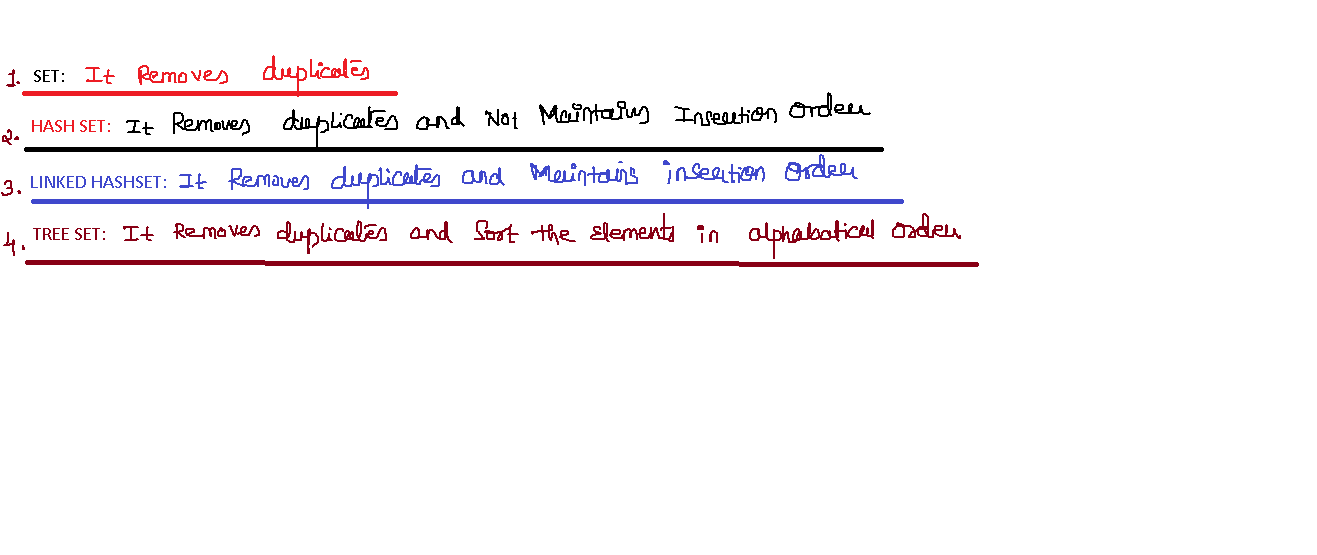 1. SET: It Removes duplicates
2. HASH SET: It Removes duplicates and Not Maintains Insertion Order
3. LINKED HASHSET: It Removes duplicates and Maintains insertion Order
4. TREE SET: It Removes duplicates and Sort the Elements in alphabatical order